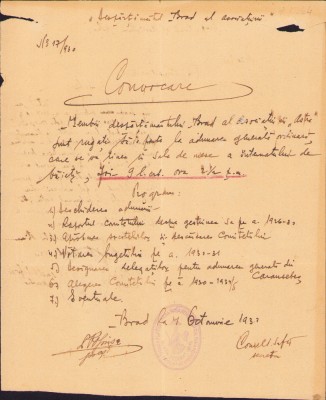 „Despărțământul Brad al asociațiunii
No 17/930
Convocare
Membrii despărțământului Brad al Asociațiunii, Astra
sunt rugați să ia parte la adunarea generală ordinară,
care se va ținea în sala de mese a internatului de
băieți, Joi 9 l. crt. ora 3½ p.m.
Program:
1) Deschiderea adunării
2) Raportul comitetului despre gestiunea sa pe a.
3) Aprobarea socotelilor și descărcarea Comitetului
4) Votarea bugetului pe a. 1930-31
5) Designarea delegaților pentru adunarea generală din
Caransebeș
6) Alegerea Comitetului pe a 1930-
7) Eventuale.
Brad la Octomvrie 193